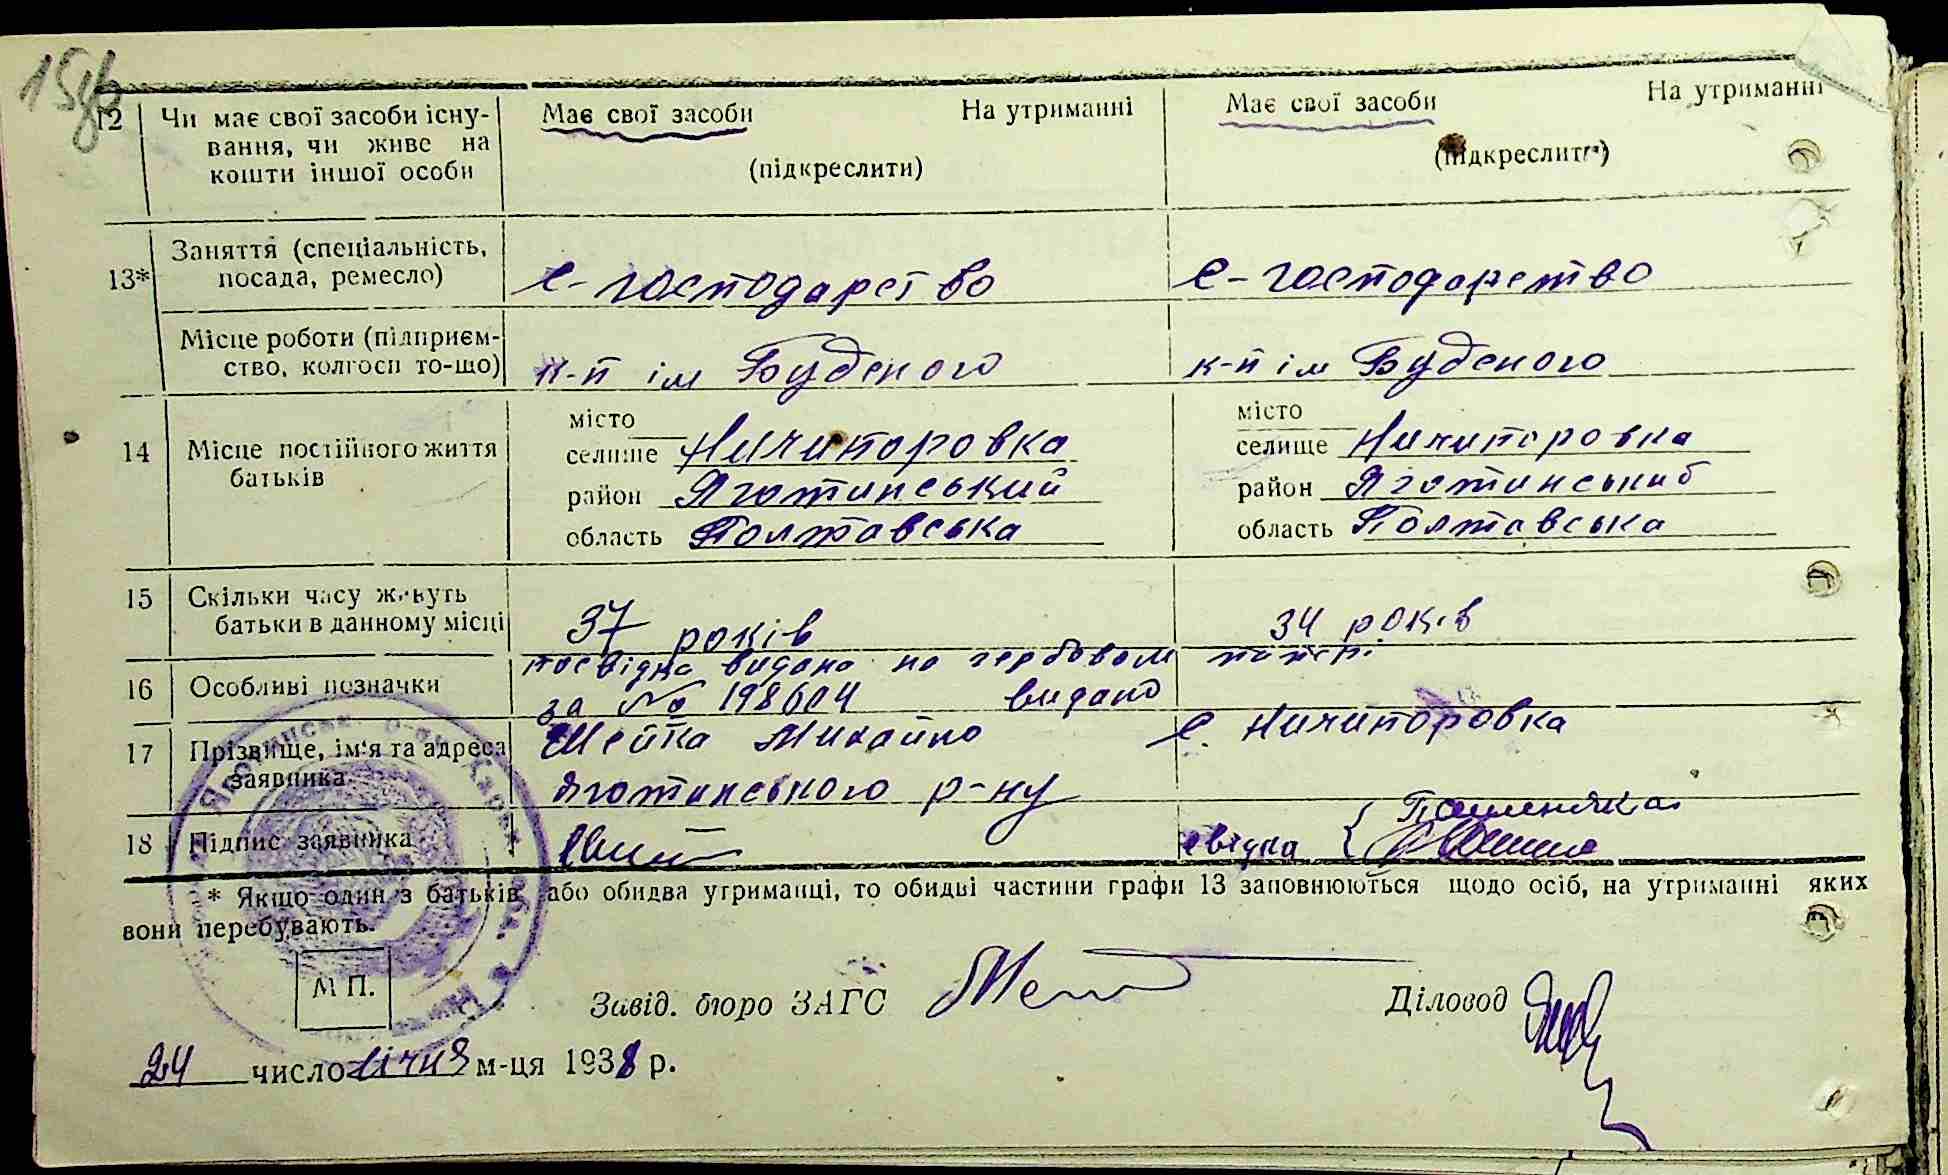 12 Чи має свої засоби існу- Має свої засоби На утриманні Має свої засоби На утриманні
вання, чи живе на
кошти іншої особи (підкреслити) (підкреслити)
13* Заняття (спеціальність,
посада, ремесло) с-господарство с-господарство
Місце роботи (підприєм-
ство, колгосп то-що) к-п ім Буденого к-п ім Буденого
місто місто
14 Місце постійного життя селище Ничипоровка селище Ничипоровка
батьків район Яготинський район Яготинський
область Полтавська область Полтавська
15 Скільки часу живуть
батьки в данному місці 37 років 34 років
посвідка видана на гербовом папері
16 Особливі позначки за № 198604 видано
17 Прізвище, ім'я та адреса Шейка Михайло с. Ничипоровка
заявника Яготинського р-ну
18 Підпис заявника свідка
* Якщо один з батьків або обидва утриманці, то обидві частини графи 13 заповнюються щодо осіб, на утриманні яких
вони перебувають.
М П.
Завід. бюро ЗАГС Діловод
24 число січня м-ця 1938 р.